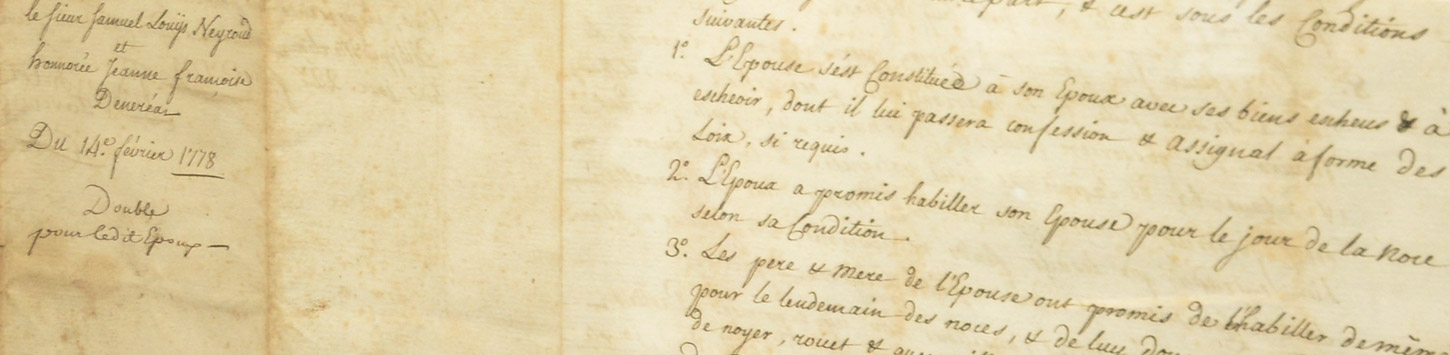 le sieur Samuel Louÿs Neyroud
et
honnorée Jeanne françoise
Deneréaz
Du 14.e février 1778
Double
pour ledit Epoux
part, & c'est sous les Conditions
suivantes.
1.o L'Epouse s'est Constituée à son Epoux avec ses biens escheus & à
escheoir, dont il lui passera confession & assignal à forme des
Loix, si requis.
2.o L'Epoux a promis habiller son Epouse pour le jour de la Noce
selon sa Condition.
3.o Les pere & mere de l'Epouse ont promis de l'habiller de mêm
pour le lendemain des noces, & de luy
de noyer, rouet &